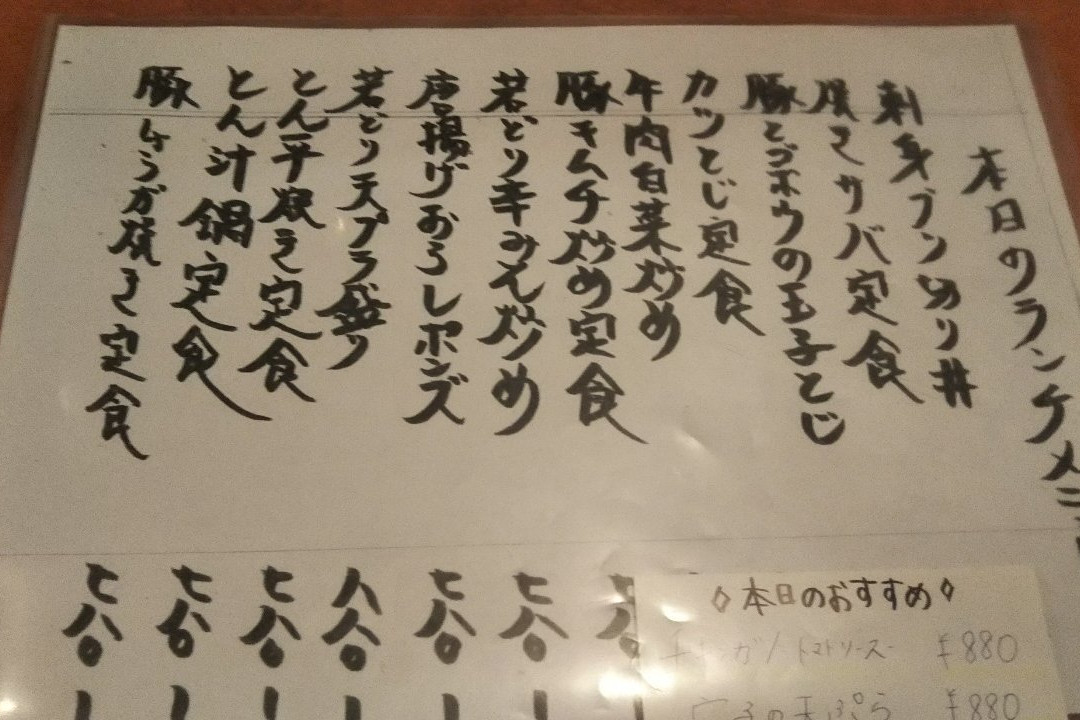 本日のランチメニュ
刺身ブツ切り丼
豚とゴボウの玉子とじ
カツとじ定食
牛肉白菜炒め
豚キムチ炒め定食
若どり辛みそ炒め
唐揚げおろしポンズ
若どり天プラ盛り
とん平焼き定食
とん汁鍋定食
豚しょうが焼き定食
七八〇
七八〇
八八〇
七八〇
七八〇
七八〇
◇本日のおすすめ◇
トマトソース ¥880
の天ぷら ¥880